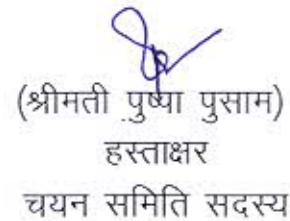 (श्रीमती पुष्पा पुसाम)
हस्ताक्षर
चयन समिति सदस्य